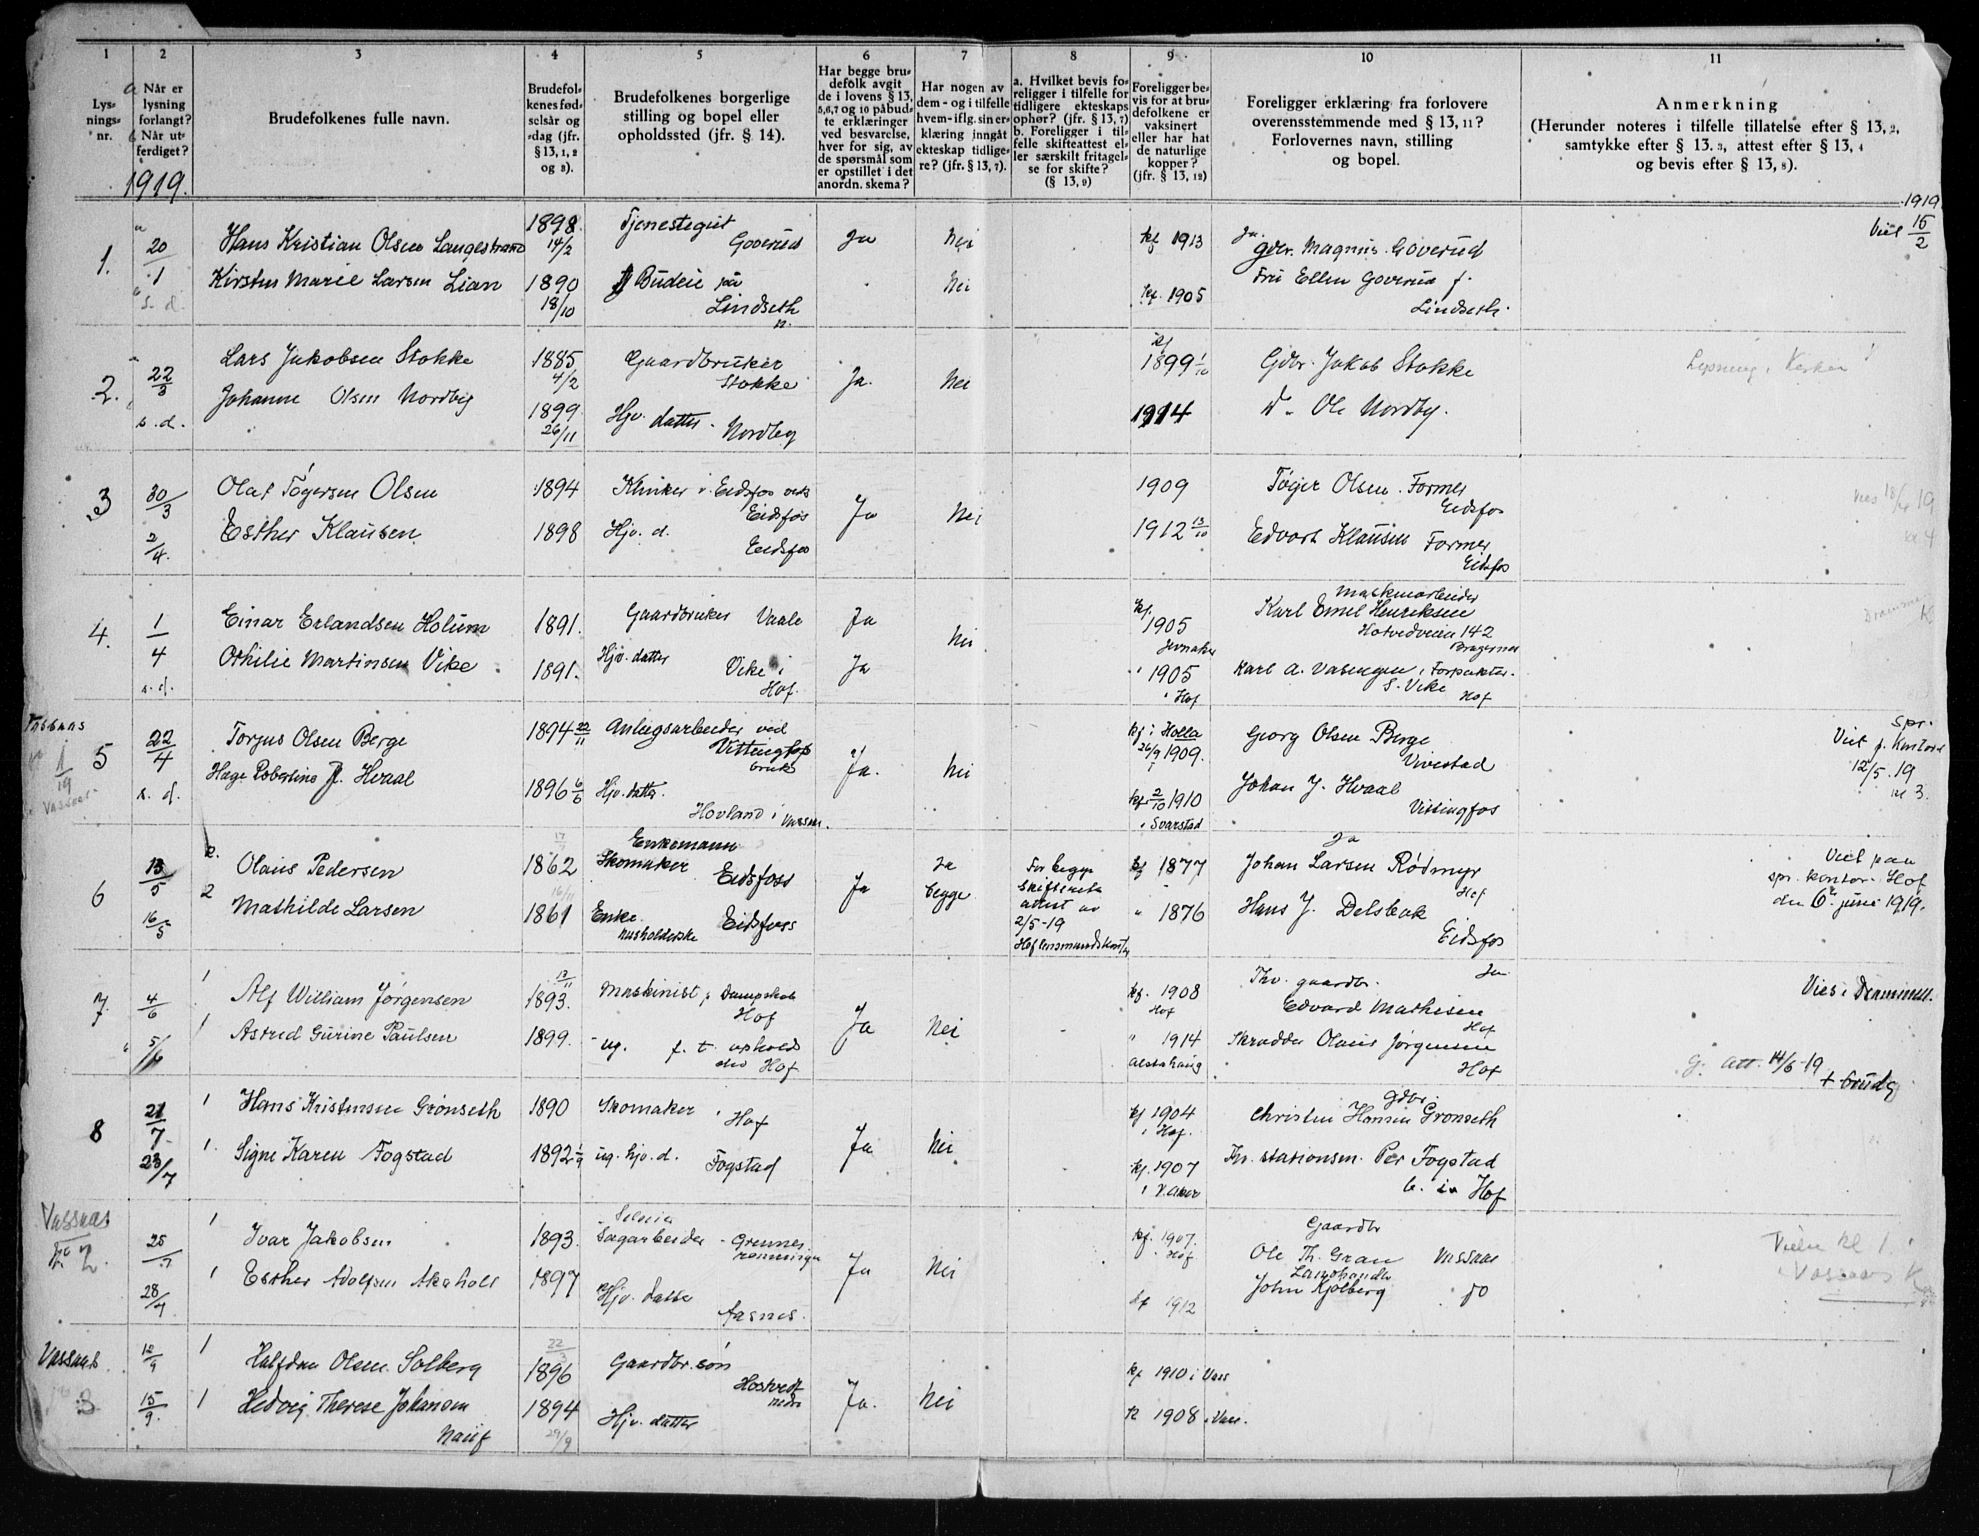 1 2 3 4 5 6 7 8 9 10 11
Lys-
nings-
nr.
a
Når er
lysning
forlangt?
b
Når ut-
ferdiget?
1919.
Brudefolkenes fulle navn.
Brudefol-
kenes fød-
selsår og
-dag (jfr.
§ 13, 1, 2
og 3).
Brudefolkenes borgerlige
stilling og bopel eller
opholdssted (jfr. § 14).
Har begge bru-
defolk avgit
de i lovens § 13,
5,6,7 og 10 påbud-
te erklæringer
ved besvarelse,
hver for sig, av
de spørsmål som
er opstillet i det
anordn. skema?
Har nogen av
dem - og i tilfelle
hvem - iflg. sin er-
klæring inngått
ekteskap tidlige-
re? (jfr. § 13, 7).
a. Hvilket bevis fo-
religger i tilfelle for
tidligere ekteskaps
ophør? (jfr. § 13, 7)
b. Foreligger i til-
felle skifteattest el-
ler særskilt fritagel-
se for skifte?
(§ 13, 9)
Foreligger be-
vis for at bru-
defolkene er
vaksinert
eller har hat
de naturlige
kopper?
(jfr. § 13, 12)
Foreligger erklæring fra forlovere
overensstemmende med § 13, 11?
Forlovernes navn, stilling
og bopel.
Anmerkning
(Herunder noteres i tilfelle tillatelse efter § 13, 2,
samtykke efter § 13. 3, attest efter § 13, 4
og bevis efter § 13, 8).
1919
1. 20/1 Hans Kristian Olsen Langestrand 1898. 14/2 Tjenestegut Goverud Ja Nei kf 1913 Ja. gdbr. Magnus Goverud Viet 15/2
s. d. Kirsten Marie Larsen Lian 1890 18/10 Budeie på Lindseth Nei kf. 1905 Fru Ellen Goverud f. Lindseth.
2. 22/3 Lars Jakobsen Stokke 1885 4/2 Gaardbruker Stokke Ja. Nei kf 1899 1/10 Gdbr. Jakob Stokke Lysning i Kirken
s. d. Johanne Olsen Nordby 1899 26/11 Hjv. datter. Nordby 1914 Ole Nordby.
3 30/3 Olaf Tøgersen Olsen 1894 Klinker v. Eidsfos verk Eidsfos Ja Nei 1909 Tøger Olsen. Former Eidsfos 18/4 19
2/4. Esther Klausen 1898 Hjv. d. Eidsfos 1912 13/10 Edvart Klausen Former Eidsfos
4. 1/4 Einar Erlandsen Holum 1891. Gaardbruker Vaale Ja Nei kf. 1905 Jevnaker Maskinarbeider Karl Emil Henriksen Hotvedveien 142 Bragernes
s. d. Othilie Martinsen Vike 1891. Hjv. datter Vike i Hof. Ja " 1905 i Hof Karl A. Vasengen, Forpakter. S. Vike Hof
Vassaas 1/19 Vassaas
5 22/4 Torjus Olsen Berge 1894 22/11 Anlegsarbeider ved Vittingfos bruk Ja. Nei kf i Holla 26/9 1909. Georg Olsen Berge Vivestad Viet p. spr. Kontoret 12/5. 19 kl 3.
s. d. Hæge Robertine J. Hvaal 1896 6/6 Hjv. datter. Hovland i Vassaas. kf 2/10 1910 i Svarstad Johan J. Hvaal Vittingfos
6 13/5 2. Olaus Pedersen 1862 Enkemann Skomaker Eidsfoss Ja Ja begge For begge skifterets attest av 2/5-19 Hof lensmandskontor kf 1877 Ja Johan Larsen Rødmyr Hof Viet paa spr. kontor. Hof den 6te juni 1919.
16/5 2 Mathilde Larsen 1861 Enke. husholderske Eidsfoss " 1876 Hans J. Delsbak Eidsfos
7. 4/6 1 Alf William Jørgensen 13/11 1893. Maskinist, Dampskib Hof Ja Nei kf. 1908 Hof Thv. gaardbr. Ja Edvard Mathisen Hof Vies i Drammen.
5/6 1 Astrid Gurine Paulsen 1899. ug. f. t. ophold Hof " 1914 Alstahaug Skrædder Olaus Jørgensen Hof Att. 14/6-19
8 21/7. 1 Hans Kristensen Grønseth 1890 Skomaker, Hof Ja Nei kf 1904 i Hof. Gdbr. Christen Hansen Grønseth
23/7 1. Signe Karen Fogstad 1892 1/9 ug. hjv. d. Fogstad kf. 1907 i V. Aker Fh. stationsm. Per Fogstad b. i Hof
Vassaas 2. 25/7 1 Ivar Jakobsen 1893. Sagarbeider Ja Nei kf. 1907. Hof Gaardbr Ole Th. Gran Vassaas Vielse kl 1 i Vassaas K
28/7 1 Esther Adolfsen Akerholt 1897 Hjv. datter Aasnes. kf 1912 Landhandler John Kjølberg do
Vassaas 3 12/9 1 Halfdan Olsen Solberg 22/3 1896 Gaardbr. søn Hostvedt nedre Ja. Nei kf 1910 i Vass
15/9. 1 Hedvig Therese Johansen Hauf 1894 29/9 Hjv. datter k 1908 i Vass.